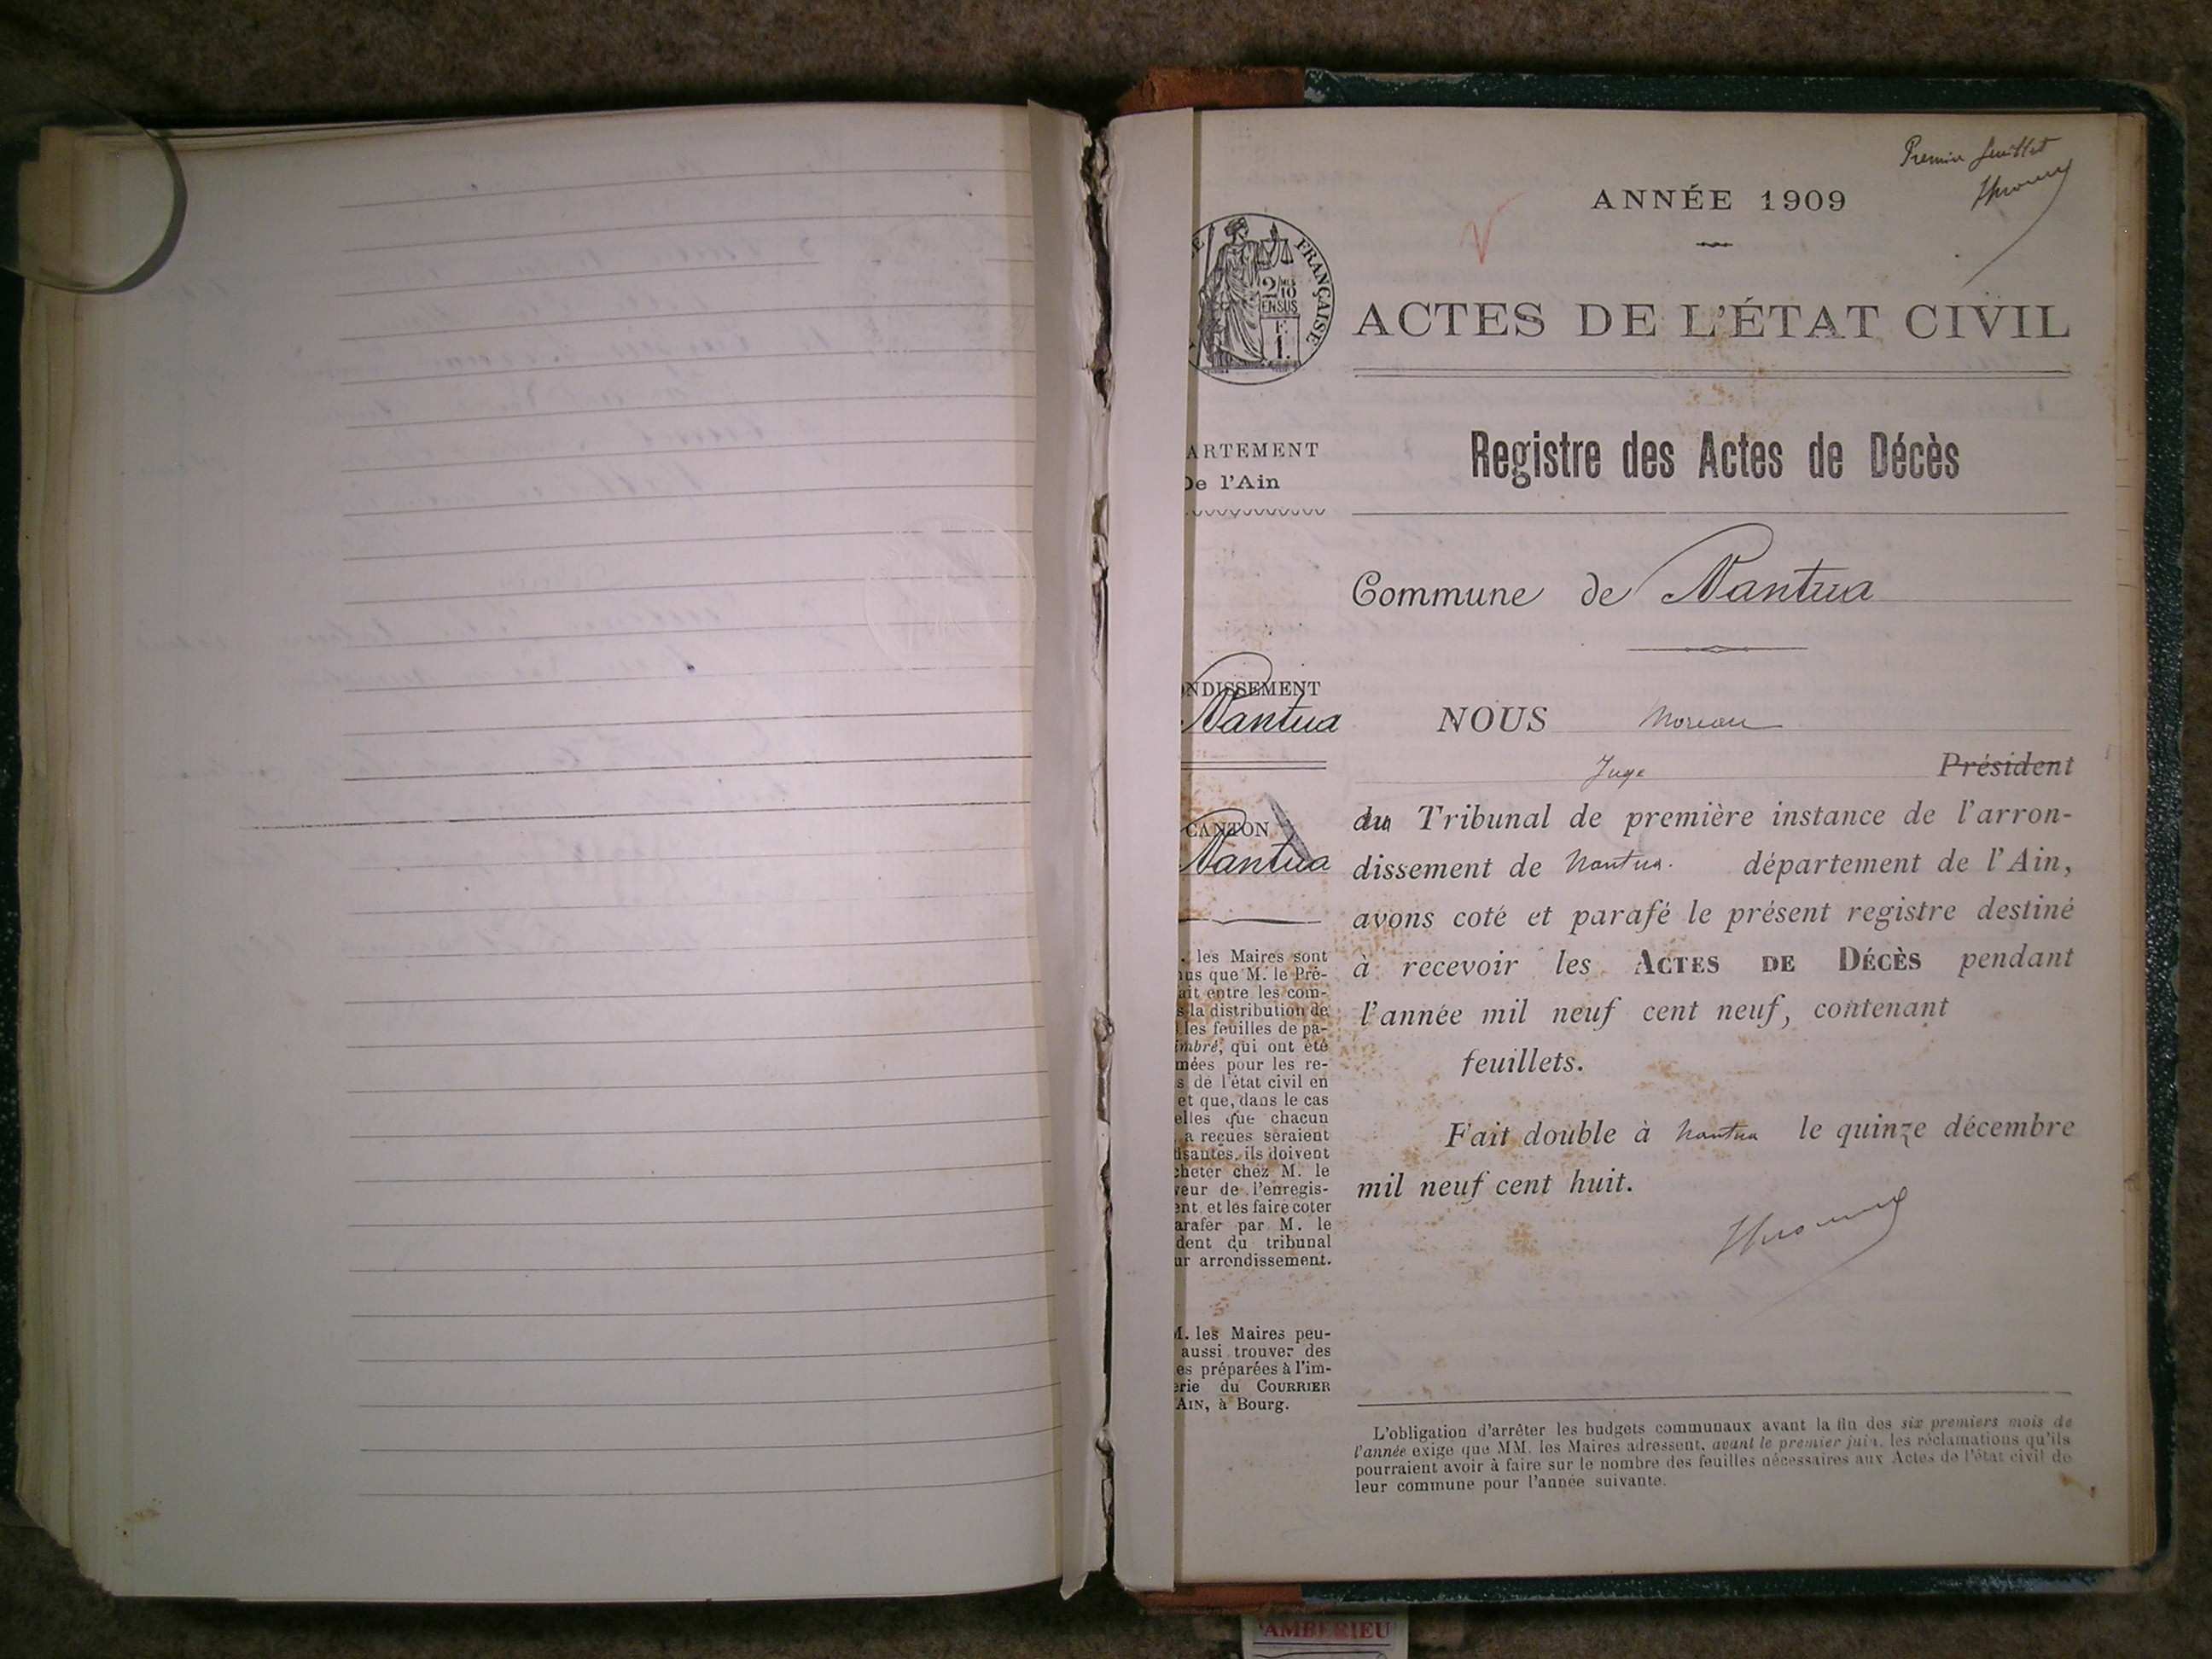 Premier feuillet
ANNÉE 1909
FRANÇAISE
2/10
EN SUS
F.
1.
ACTES DE L'ÉTAT CIVIL
ARTEMENT
De l'Ain
Registre des Actes de Décès
Commune de Nantua
ONDISSEMENT
Nantua
CANTON
Nantua
NOUS Moreau
Juge Président
du Tribunal de première instance de l'arron-
dissement de Nantua. département de l'Ain,
avons coté et parafé le présent registre destiné
à recevoir les ACTES DE DÉCÈS pendant
l'année mil neuf cent neuf, contenant
feuillets.
Fait double à Nantua le quinze décembre
mil neuf cent huit.
. les Maires sont
nus que M. le Pré-
ait entre les com-
s la distribution de
les feuilles de pa-
imbré, qui ont été
mées pour les re-
s de l'état civil en
et que, dans le cas
elles que chacun
a reçues seraient
isantes, ils doivent
cheter chez M. le
veur de l'enregis-
ent et les faire coter
arafer par M. le
dent du tribunal
ur arrondissement.
M. les Maires peu-
aussi trouver des
es préparées à l'im-
erie du COURRIER
AIN, à Bourg.
L'obligation d'arrêter les budgets communaux avant la fin des six premiers mois de
l'année exige que MM. les Maires adressent, avant le premier juin, les réclamations qu'ils
pourraient avoir à faire sur le nombre des feuilles nécessaires aux Actes de l'état civil de
leur commune pour l'année suivante.
AMBERIEU